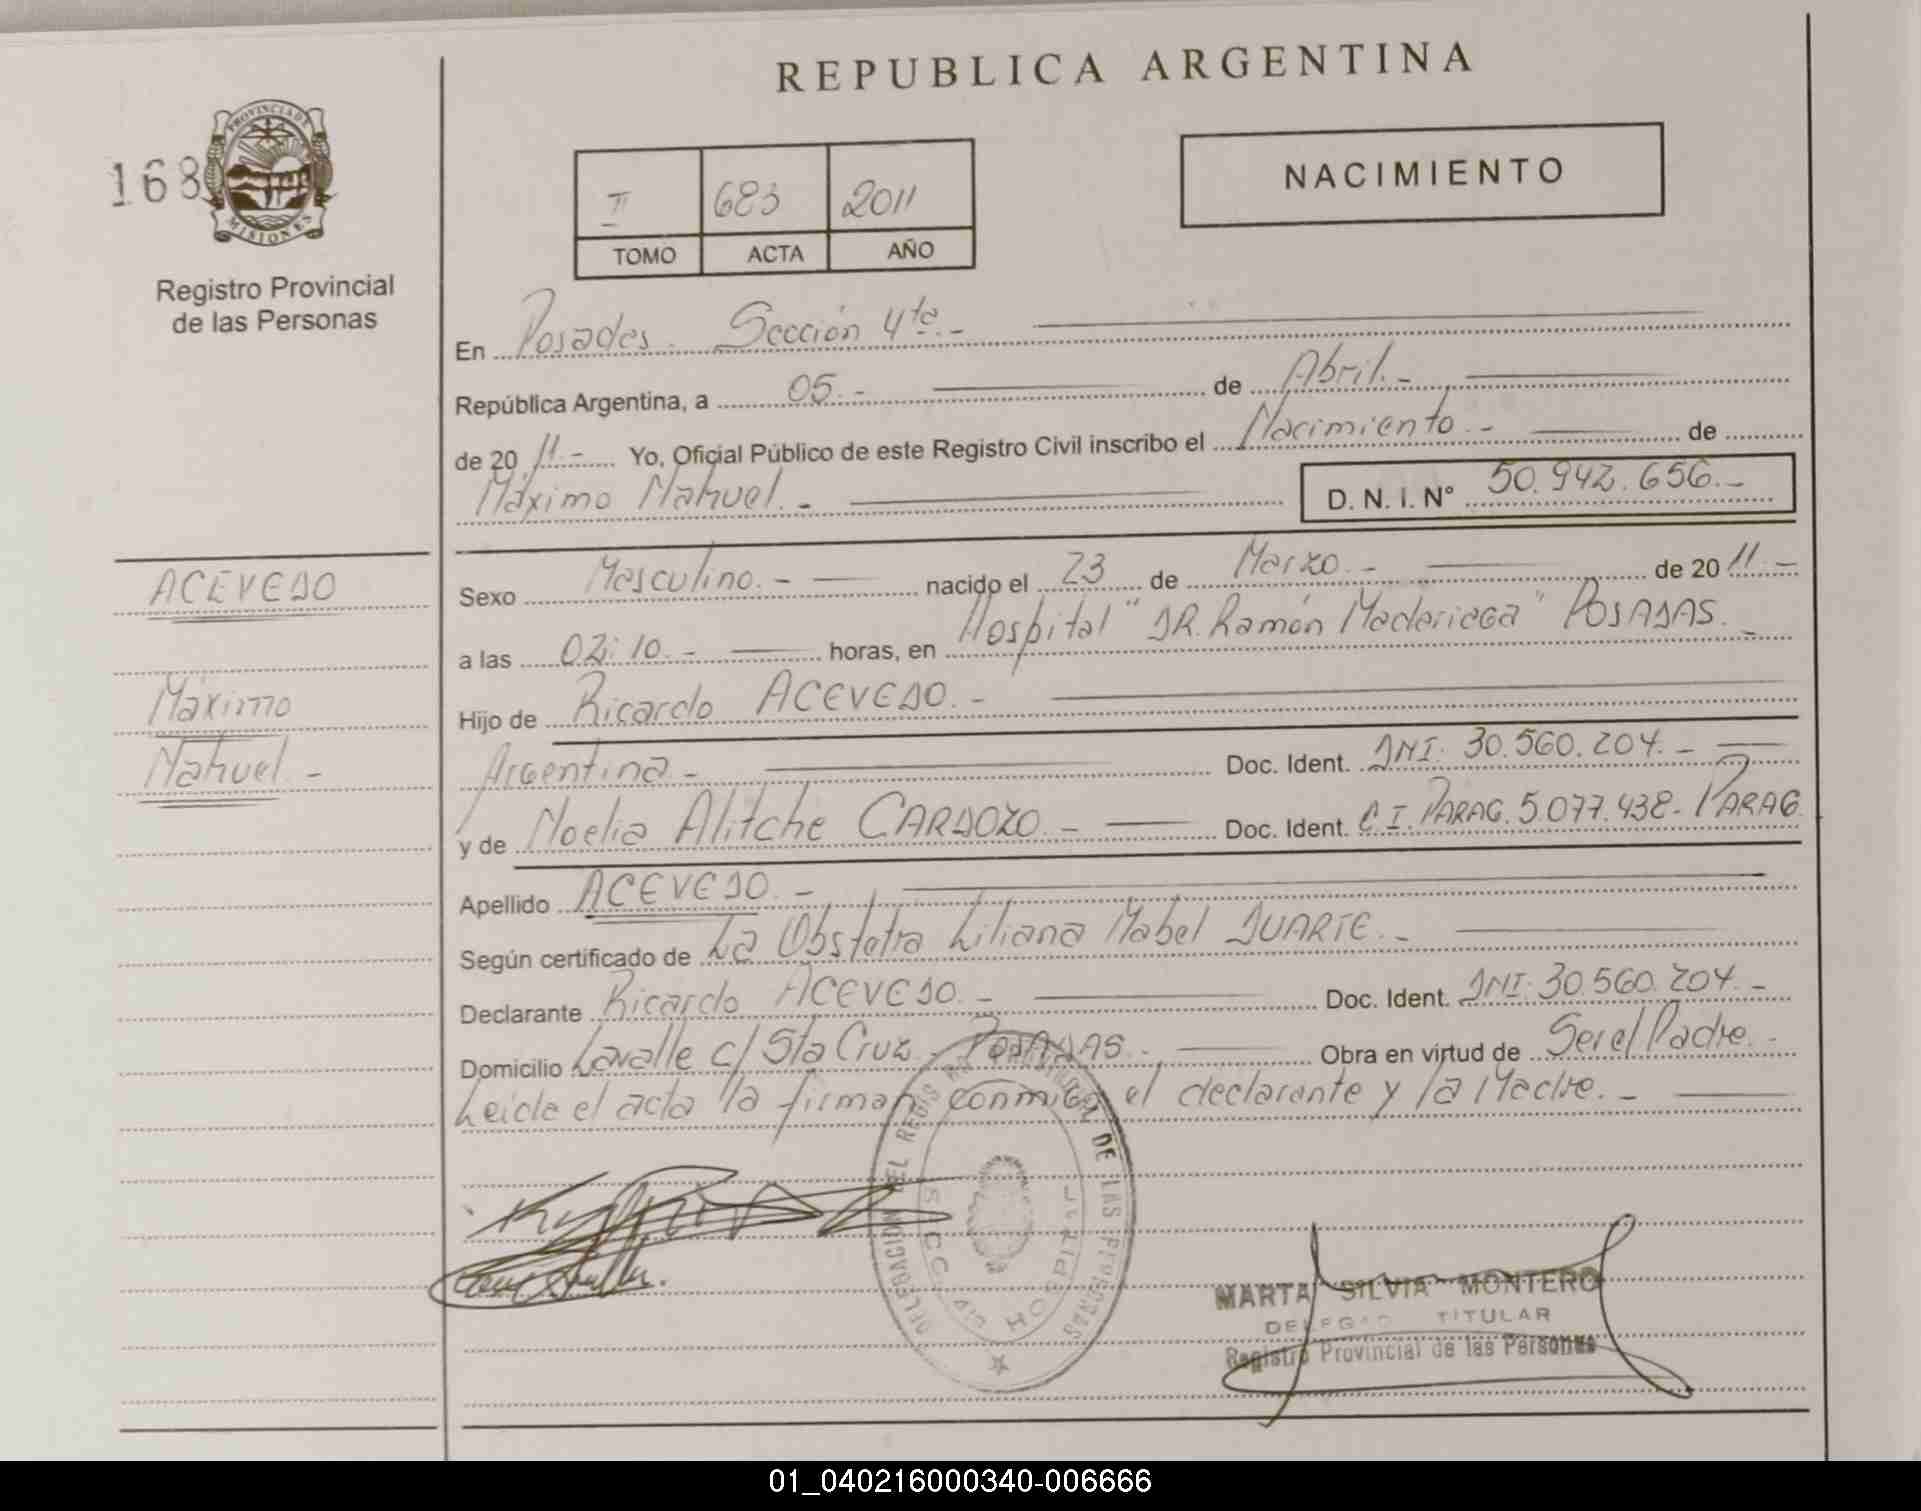 REPUBLICA ARGENTINA
168
PROVINCIA DE
MISIONES
Registro Provincial
de las Personas
II 683 2011
TOMO ACTA AÑO
NACIMIENTO
En Posadas. Sección 4ta.-
República Argentina, a 05.- de Abril.-
de 20 11.- Yo, Oficial Público de este Registro Civil inscribo el Nacimiento.- de
Máximo Nahuel.- D. N. I. N° 50.942.656.-
ACEVEDO
Máximo
Nahuel.-
Sexo Masculino.- nacido el 23 de Marzo.- de 20 11.-
a las 02:10.- horas, en Hospital "DR. Ramón Madariaga" POSADAS.-
Hijo de Ricardo ACEVEDO.-
Argentina.- Doc. Ident. DNI. 30.560.204.-
y de Noelia Alitche CARDOZO.- Doc. Ident. C.I. PARAG. 5.077.438- PARAG
Apellido ACEVEDO.-
Según certificado de La Obstetra Liliana Mabel DUARTE.-
Declarante Ricardo ACEVEDO.- Doc. Ident. DNI. 30.560.204.-
Domicilio Lavalle c/ Sta Cruz - POSADAS.- Obra en virtud de Ser el Padre.-
Leida el acta la firman conmigo el declarante y la Madre.-
DELEGACION DEL REGISTRO PROVINCIAL DE LAS PERSONAS
SECC. 4ta HOSPITAL
MARTA SILVIA MONTERO
DELEGADA TITULAR
Registro Provincial de las Personas
01_040216000340-006666